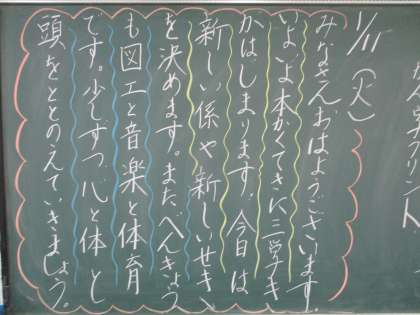 1/11(火)
みなさんおはようございます。
いよいよ本かくてきに三学き
がはじまります。今日は
新しい係や新しいせき
を決めます。また、べんきょう
も図工と音楽と体育
です。少しずつ、心と体と
頭をととのえていきましょう。